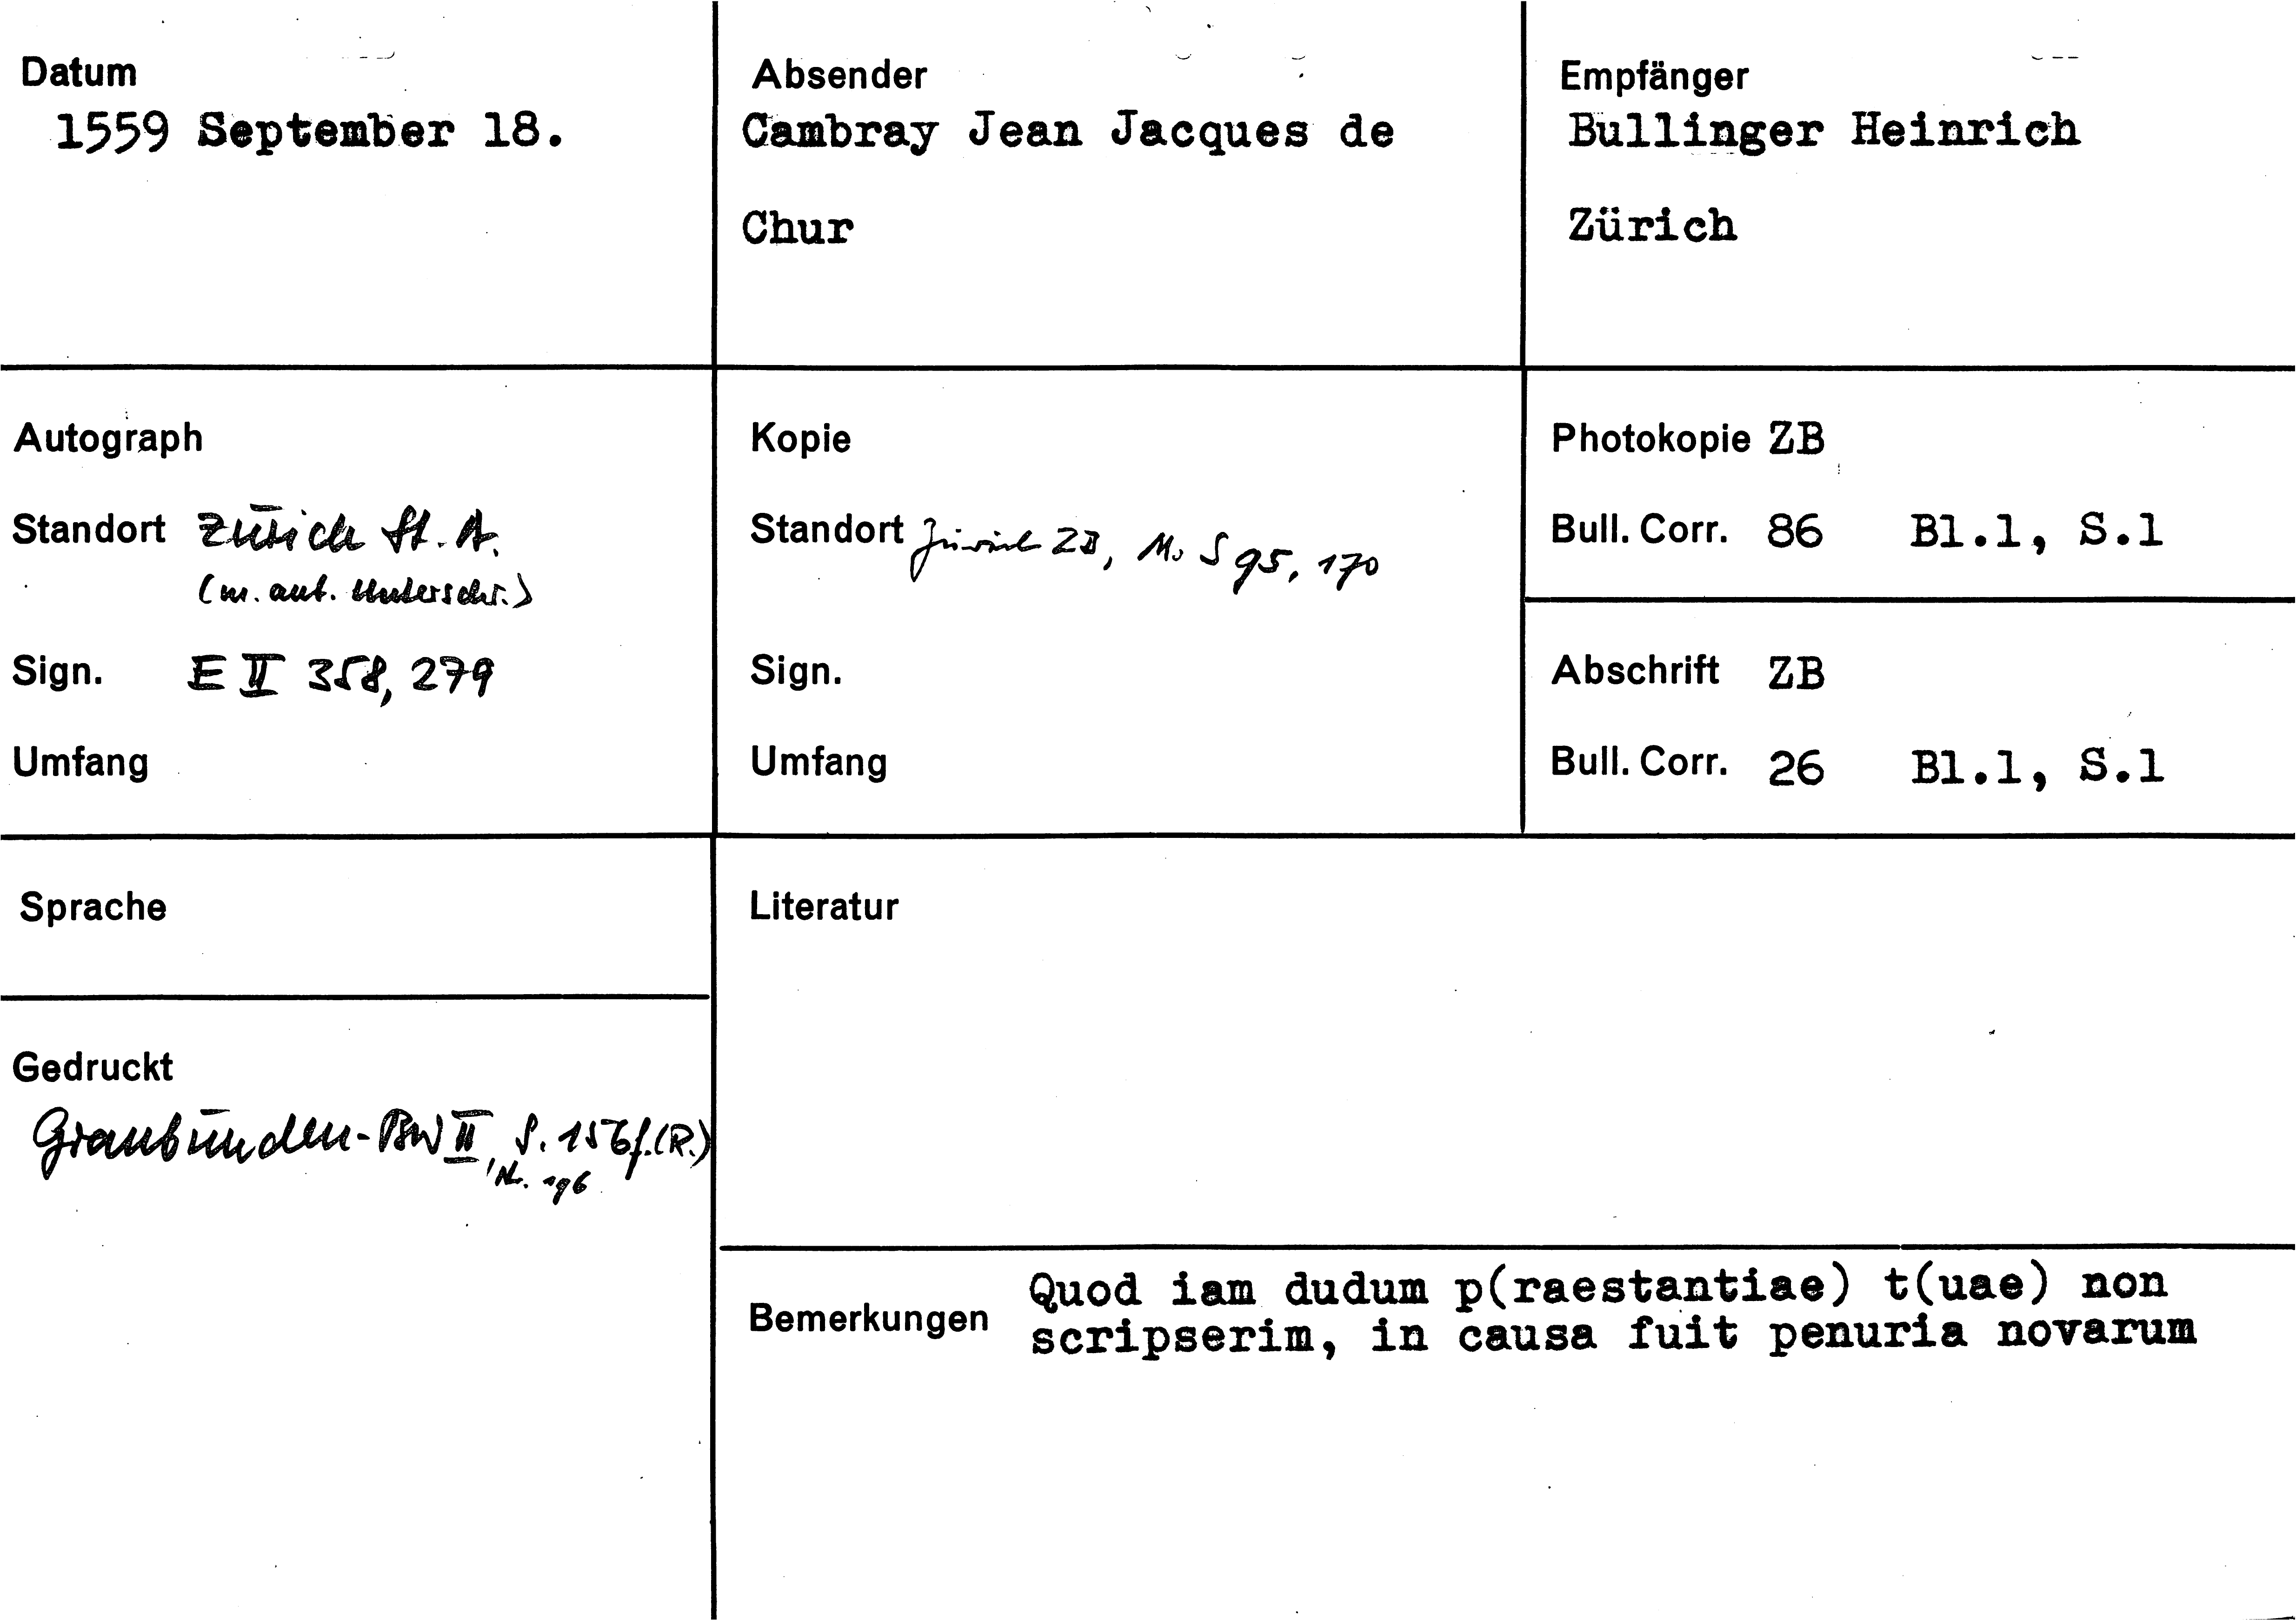 Datum
1559 September 18.
Absender
Cambray Jean Jacques de
Chur
Empfänger
Bullinger Heinrich
Zürich
Autograph
Standort Zürich St. A.
(m. aut. Unterschr.)
Sign. E II 358, 279
Umfang
Kopie
Standort Zürich ZB, Ms S 95, 170
Sign.
Umfang
Photokopie ZB
Bull. Corr. 86 Bl.1, S.1
Abschrift ZB
Bull. Corr. 26 Bl.1, S.1
Sprache
Gedruckt
Graubünden-BW II, S. 156f. (R.)
Nr. 196
Literatur
Bemerkungen
Quod iam dudum p(raestantiae) t(uae) non
scripserim, in causa fuit penuria novarum